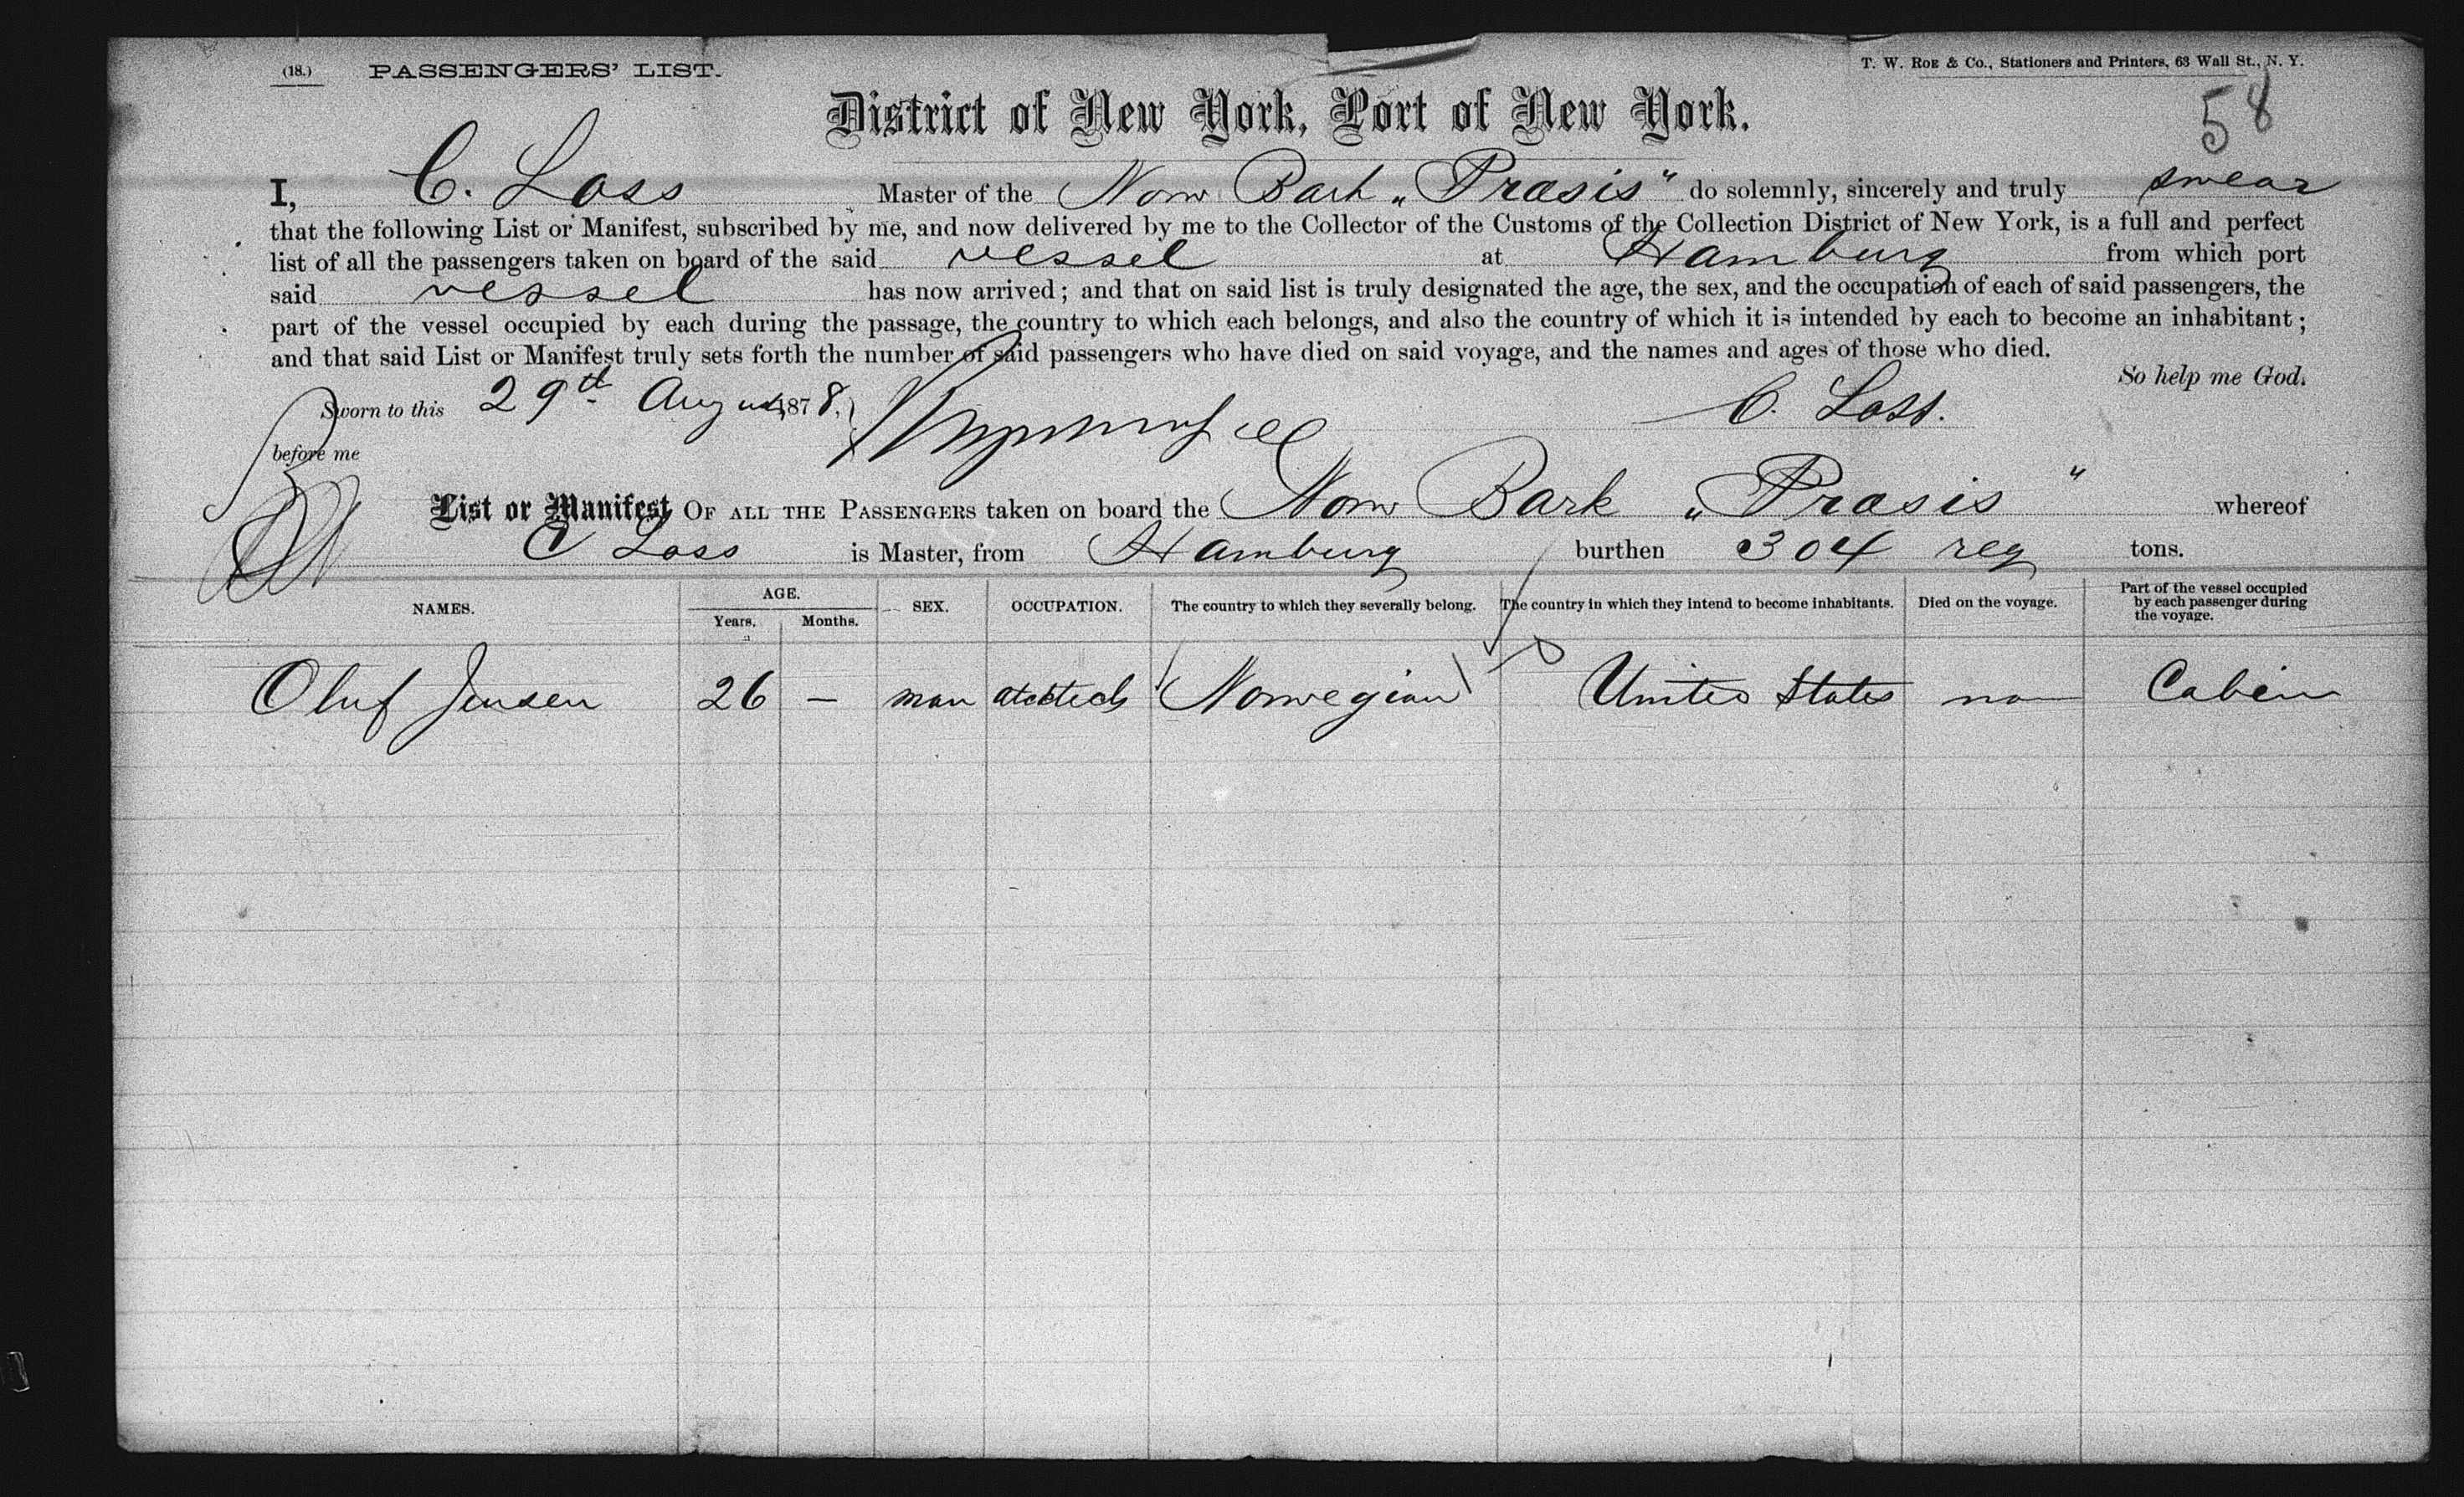 (18.) PASSENGERS' LIST. T. W. ROE & Co., Stationers and Printers, 63 Wall St., N. Y.
58
District of New York, Port of New York.
I, C. Loss Master of the Norw Bark „Praxis" do solemnly, sincerely and truly swear
that the following List or Manifest, subscribed by me, and now delivered by me to the Collector of the Customs of the Collection District of New York, is a full and perfect
list of all the passengers taken on board of the said vessel at Hamburg from which port
said vessel has now arrived; and that on said list is truly designated the age, the sex, and the occupation of each of said passengers, the
part of the vessel occupied by each during the passage, the country to which each belongs, and also the country of which it is intended by each to become an inhabitant;
and that said List or Manifest truly sets forth the number of said passengers who have died on said voyage, and the names and ages of those who died.
So help me God.
Sworn to this 29th August 1878, C. Loss.
before me
List or Manifest OF ALL THE PASSENGERS taken on board the Norw Bark „Praxis" whereof
C Loss is Master, from Hamburg burthen 304 reg tons.
NAMES. AGE. Years. Months. SEX. OCCUPATION. The country to which they severally belong. The country in which they intend to become inhabitants. Died on the voyage. Part of the vessel occupied by each passenger during the voyage.
Oluf Jensen 26 — man Norwegian United States no Cabin